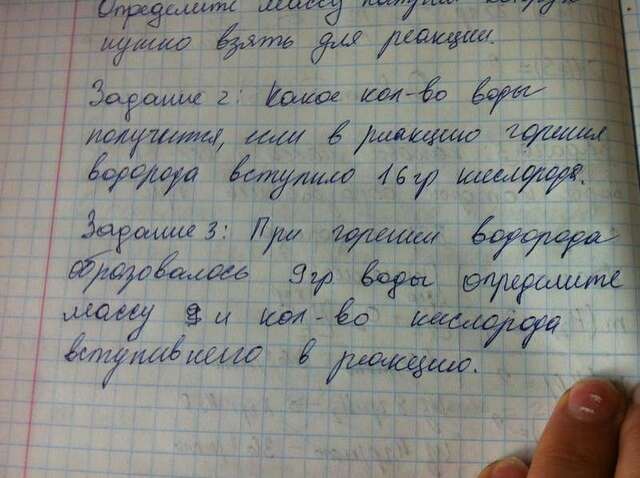 Определите массу
нужно взять для реакции.
Задание 2: Какое кол-во воды
получится, если в реакцию горения
водорода вступило 16гр кислорода.
Задание 3: При горении водорода
образовалось 9гр воды определите
массу и кол-во кислорода
вступившего в реакцию.